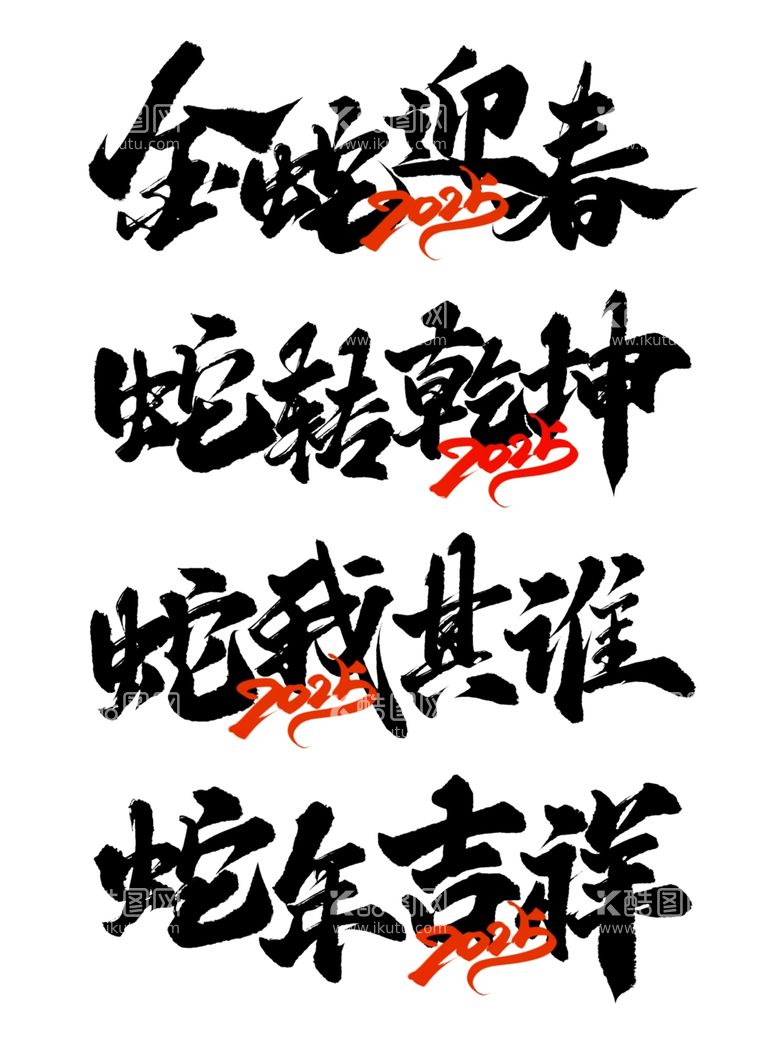 金蛇迎春
2025
蛇转乾坤
2025
蛇我其谁
2025
蛇年吉祥
2025
酷图网
www.ikutu.com